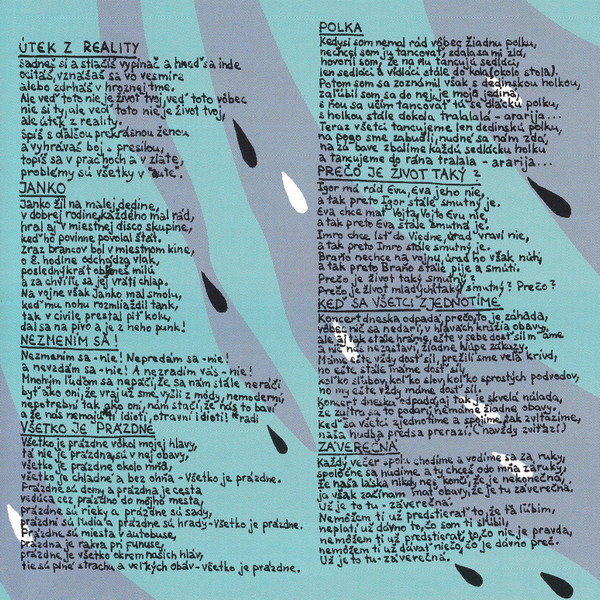 ÚTEK Z REALITY
Sadneš si a stlačíš vypínač a hneď sa inde
ocitáš, vznášaš sa vo vesmíre
alebo zdrháš v hroznej tme.
Ale veď toto nie je život tvoj, veď toto vôbec
nie si ty, ale veď toto nie je život tvoj,
ale útek z reality.
Spíš s ďalšou prekrásnou ženou
a vyhrávaš boj s presilou,
topíš sa v prachoch a v zlate,
problémy sú všetky v "aute".
JANKO
Janko žil na malej dedine,
v dobrej rodine, každého mal rád,
hral aj v miestnej disco skupine,
keď ho povinne povolal štát.
Zraz brancov bol v miestnom kine,
o 8. hodine odchodzo vlak,
posledný krát objímeš milú
a za chvíľu sa jej vráti chlap.
Na vojne však Janko mal smolu,
keď mu nohu rozmliaždil tank,
tak v civile prestal piť kolu,
dal sa na pivo a je z neho punk!
NEZMENÍM SA!
Nezmením sa - nie! Nepredám sa - nie!
a nevzdám sa - nie! A nezradím vás - nie!
Mnohým ľuďom sa nepáči, že sa nám stále neráči
byť ako oni, že vraj už sme vyšli z módy, nemoderní,
nepotrební tak ako oni, nám stačí, že nás to baví
a že nás nemajú idioti, otravní idioti! radi
VŠETKO JE PRÁZDNE
Všetko je prázdne vôkol mojej hlavy,
tá nie je prázdna, sú v nej obavy,
všetko je prázdne okolo mňa,
všetko je chladné a bez ohňa - všetko je prázdne.
Prázdne sú domy a prázdna je cesta
vedúca cez prázdno do môjho mesta,
prázdne sú rieky a prázdne sú sady,
prázdni sú ľudia a prázdne sú hrady - všetko je prázdne.
Prázdne sú miesta v autobuse,
prázdna je rakva pri funuse,
prázdne je všetko okrem našich hláv,
tie sú plné strachu a veľkých obáv - všetko je prázdne.
POLKA
Kedysi som nemal rád vôbec žiadnu polku,
nechcel som ju tancovať, zdala sa mi zlá,
hovoril som, že na ňu tancujú sedláci,
len sedláci a vidláci stále do kola (okolo stola).
Potom som sa zoznámil však s dedinskou holkou,
zaľúbil som sa do nej, je moja jediná,
s ňou sa učím tancovať tú sedlácku polku,
s holkou stále dokola tralalala - ararija...
Teraz všetci tancujeme len dedinskú polku,
na pogo sme zabudli, nudné sa nám zdá,
na zábave zbalíme každú sedlácku holku
a tancujeme do rána tralala - ararija...
PREČO JE ŽIVOT TAKÝ?
Igor má rád Evu, Eva jeho nie,
a tak preto Igor stále smutný je.
Eva chce mať Vojta, Vojto Evu nie,
a tak preto Eva stále smutná je.
Imro chce ísť do Viedne, úrad vraví nie,
a tak preto Imro stále smutný je.
Braňo nechce na vojnu, úrad ho však núti,
a tak preto Braňo stále pije a smúti.
Prečo je život taký smutný?
Prečo je život mladých taký smutný? Prečo? Prečo?
KEĎ SA VŠETCI ZJEDNOTÍME
Koncert dneska odpadá, prečo, to je záhada,
vôbec nič sa nedarí, v hlavách krúžia obavy,
ale aj tak stále hráme, ešte v sebe dosť síl máme
a nik nás nezastaví, žiadne hlúpe zákazy.
Máme ešte vždy dosť síl, prežili sme veľa krívd,
no ešte stále máme dosť síl,
koľko sľubov, koľko slov, koľko sprostých podvodov,
no my ešte vždy máme dosť síl.
Koncert dneska odpadá, aj tak je skvelá nálada,
že zajtra sa to podarí, nemáme žiadne obavy.
Keď sa všetci zjednotíme a spojíme tak zvíťazíme,
naša hudba predsa prerazí. (navždy zvíťazí)
ZÁVEREČNÁ
Každý večer spolu chodíme a vodíme sa za ruky,
spoločne sa nudíme a ty chceš odo mňa záruky,
že naša láska nikdy neskončí, že je nekonečná,
ja však začínam mať obavy, že je tu záverečná.
Už je to tu - záverečná.
Nemôžem ti už predstierať to, že ťa ľúbim,
neplatí už dávno to, čo som ti sľúbil,
nemôžem ti už predstierať to, čo nie je pravda,
nemôžem ti už dávať niečo, čo je dávno preč.
Už je to tu - záverečná.